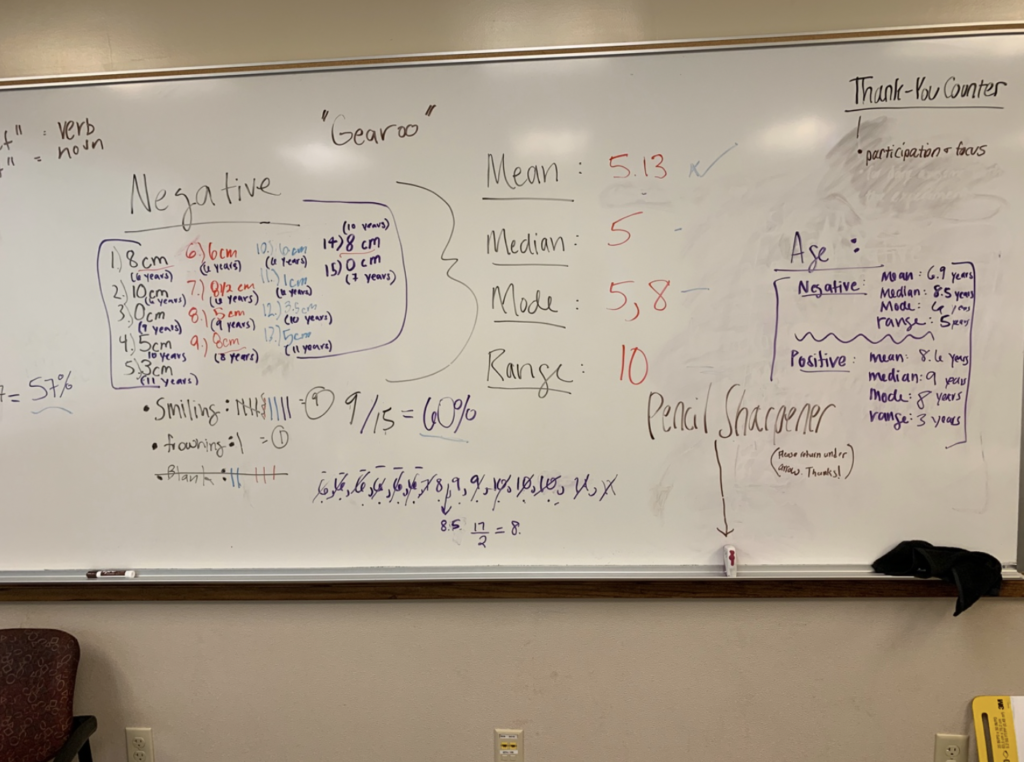 Thank-You Counter
• participation & focus
" : verb
" = noun
"Gearoo"
Negative
1) 8cm
(6 years)
2.) 10cm
3.) 0cm
(9 years)
4.) 5cm
10 years
5.) 3cm
(11 years)
6.) 6cm
7.) 8 1/2 cm
8.) 5cm
(9 years)
9.) 8cm
(8 years)
10.)
11.) 1cm
12.) 3.5cm
(10 years)
13.) 5cm
(11 years)
(10 years)
14) 8 cm
15.) 0 cm
(7 years)
= 57%
• Smiling : = 9
9/15 = 60%
• frowning : 1 = 1
• Blank :
8.5 17/2 = 8.
Mean : 5.13
Median : 5
Mode : 5,8
Range : 10
Pencil Sharpener
(Please return under
arrow. Thanks!)
Age :
Negative :
Mean : 6.9 years
Median : 8.5 years
Mode : 6
range : 5 years
Positive :
mean : 8.6 years
median : 9 years
Mode : 8 years
range : 3 years